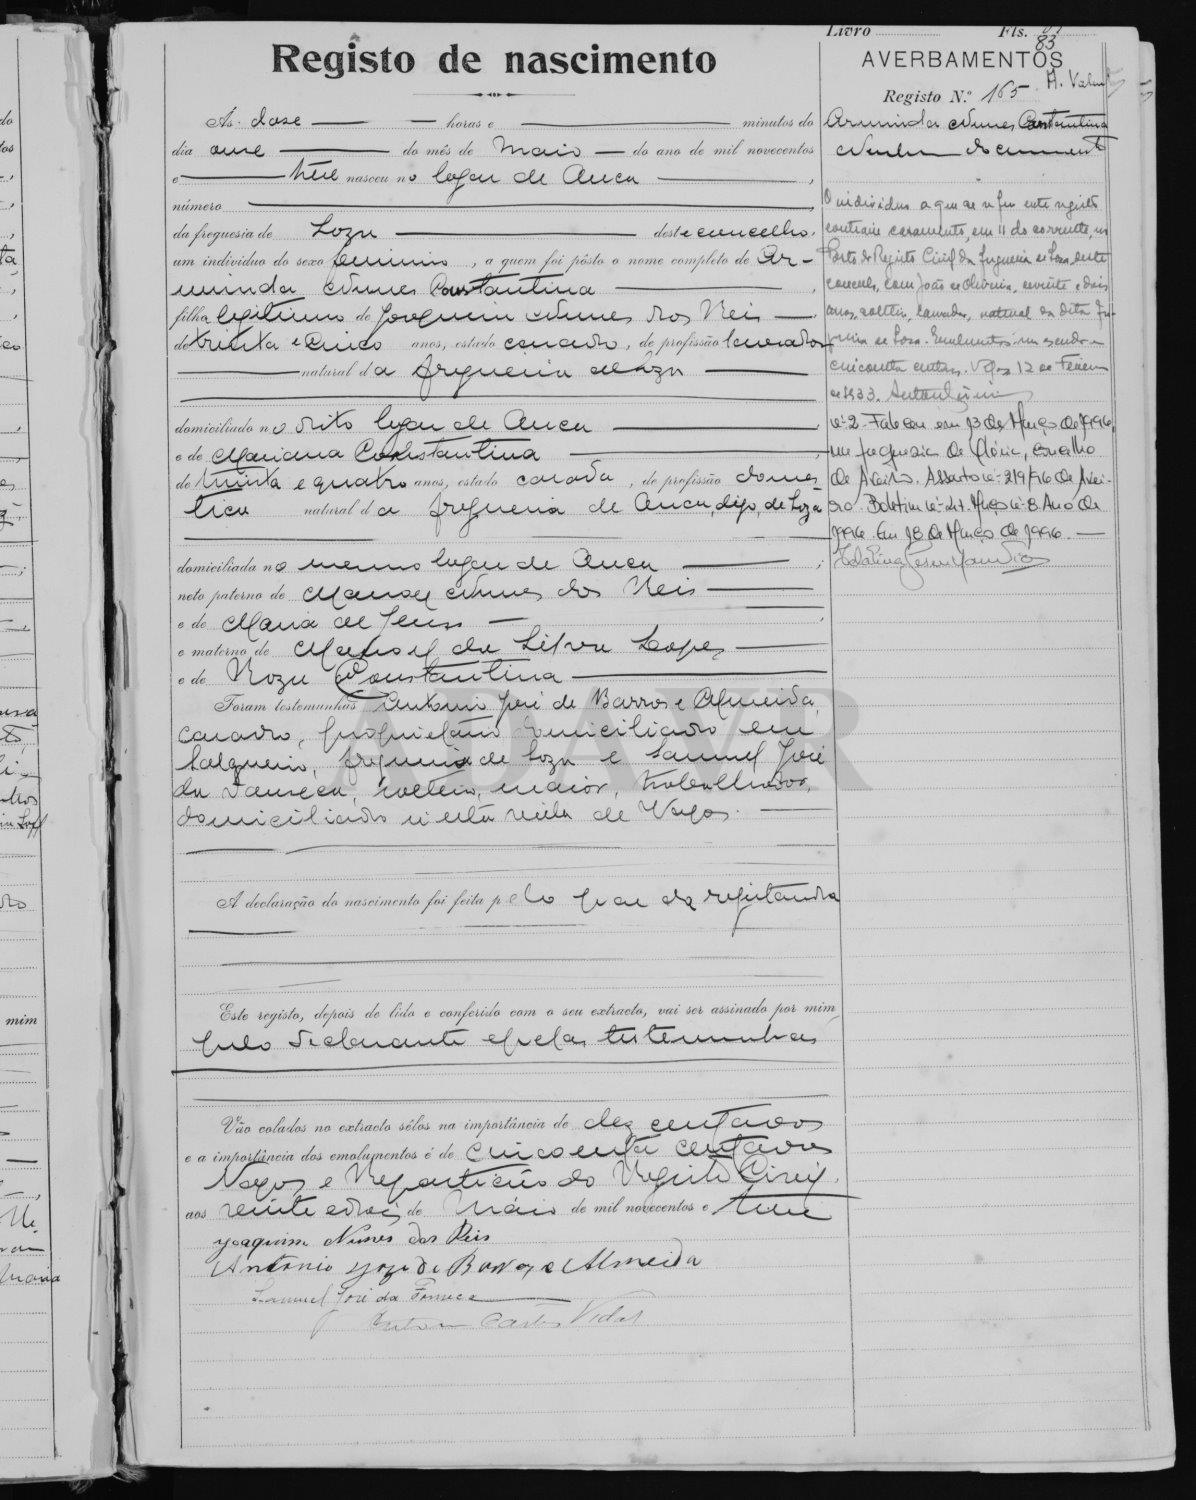 Livro Fls. 83
Registo de nascimento
AVERBAMENTOS
Registo N.º 165
Às dose — horas e — minutos do
dia onse — do mês de Maio — do ano de mil novecentos
e — treze nasceu no logar de Ouca — ,
número —
da freguesia de Soza — deste concelho,
um indivíduo do sexo feminino, a quem foi pôsto o nome completo de Ar-
minda Nunes Constantina —
filha legitima de Joaquim Nunes dos Reis — ,
de trinta e cinco anos, estado casado, de profissão lavrador
— natural da freguesia de Soza —
domiciliado no dito logar de Ouca —
e de Mariana Constantina — ,
de trinta e quatro anos, estado casada, de profissão domes-
tica natural da freguesia de Ouca, digo, de Soza
domiciliada no mesmo logar de Ouca — ;
neto paterno de Manoel Nunes dos Reis —
e de Maria de Jesus —
e materno de Manoel da Silva Lopes —
e de Roza Constantina —
Foram testemunhas Antonio José de Barros e Almeida,
casado, proprietario domiciliado em
Salgueiro, freguesia de Soza e Samuel José
da Fonseca, solteiro, maior, trabalhador,
domiciliado n'esta vila de Vagos. —
A declaração do nascimento foi feita pelo pae da registanda
Este registo, depois de lido e conferido com o seu extracto, vai ser assinado por mim
pelo declarante e pelas testemunhas
Vão colados no extracto sêlos na importância de dez centavos
e a importância dos emolumentos é de cincoenta centavos
Vagos e Repartição do Registo Civil,
aos vinte e dois de Maio de mil novecentos e treze
Joaquim Nunes dos Reis
Antonio José de Barros e Almeida
Samuel José da Fonseca
Carlos Vidal
Arminda Nunes Constantina
Nenhum documento
O individuo a que se refere este registo
contraiu casamento, em 11 do corrente, no
Posto do Registo Civil da freguesia de Soza, deste
concelho, com João de Oliveira, de vinte e dois
anos, solteiro, lavrador, natural da dita fre-
guesia de Soza. Emolumentos: um escudo e
cincoenta centavos. Vagos, 12 de Fevereiro
de 1933.
nº 2 - Faleceu em 13 de Março de 1996,
na freguesia de Glória, concelho
de Aveiro. Assento nº 219/96 de Avei-
ro. Boletim nº 41. Março nº 8. Ano de
1996. Em 18 de Março de 1996. —
ADAVR
mim